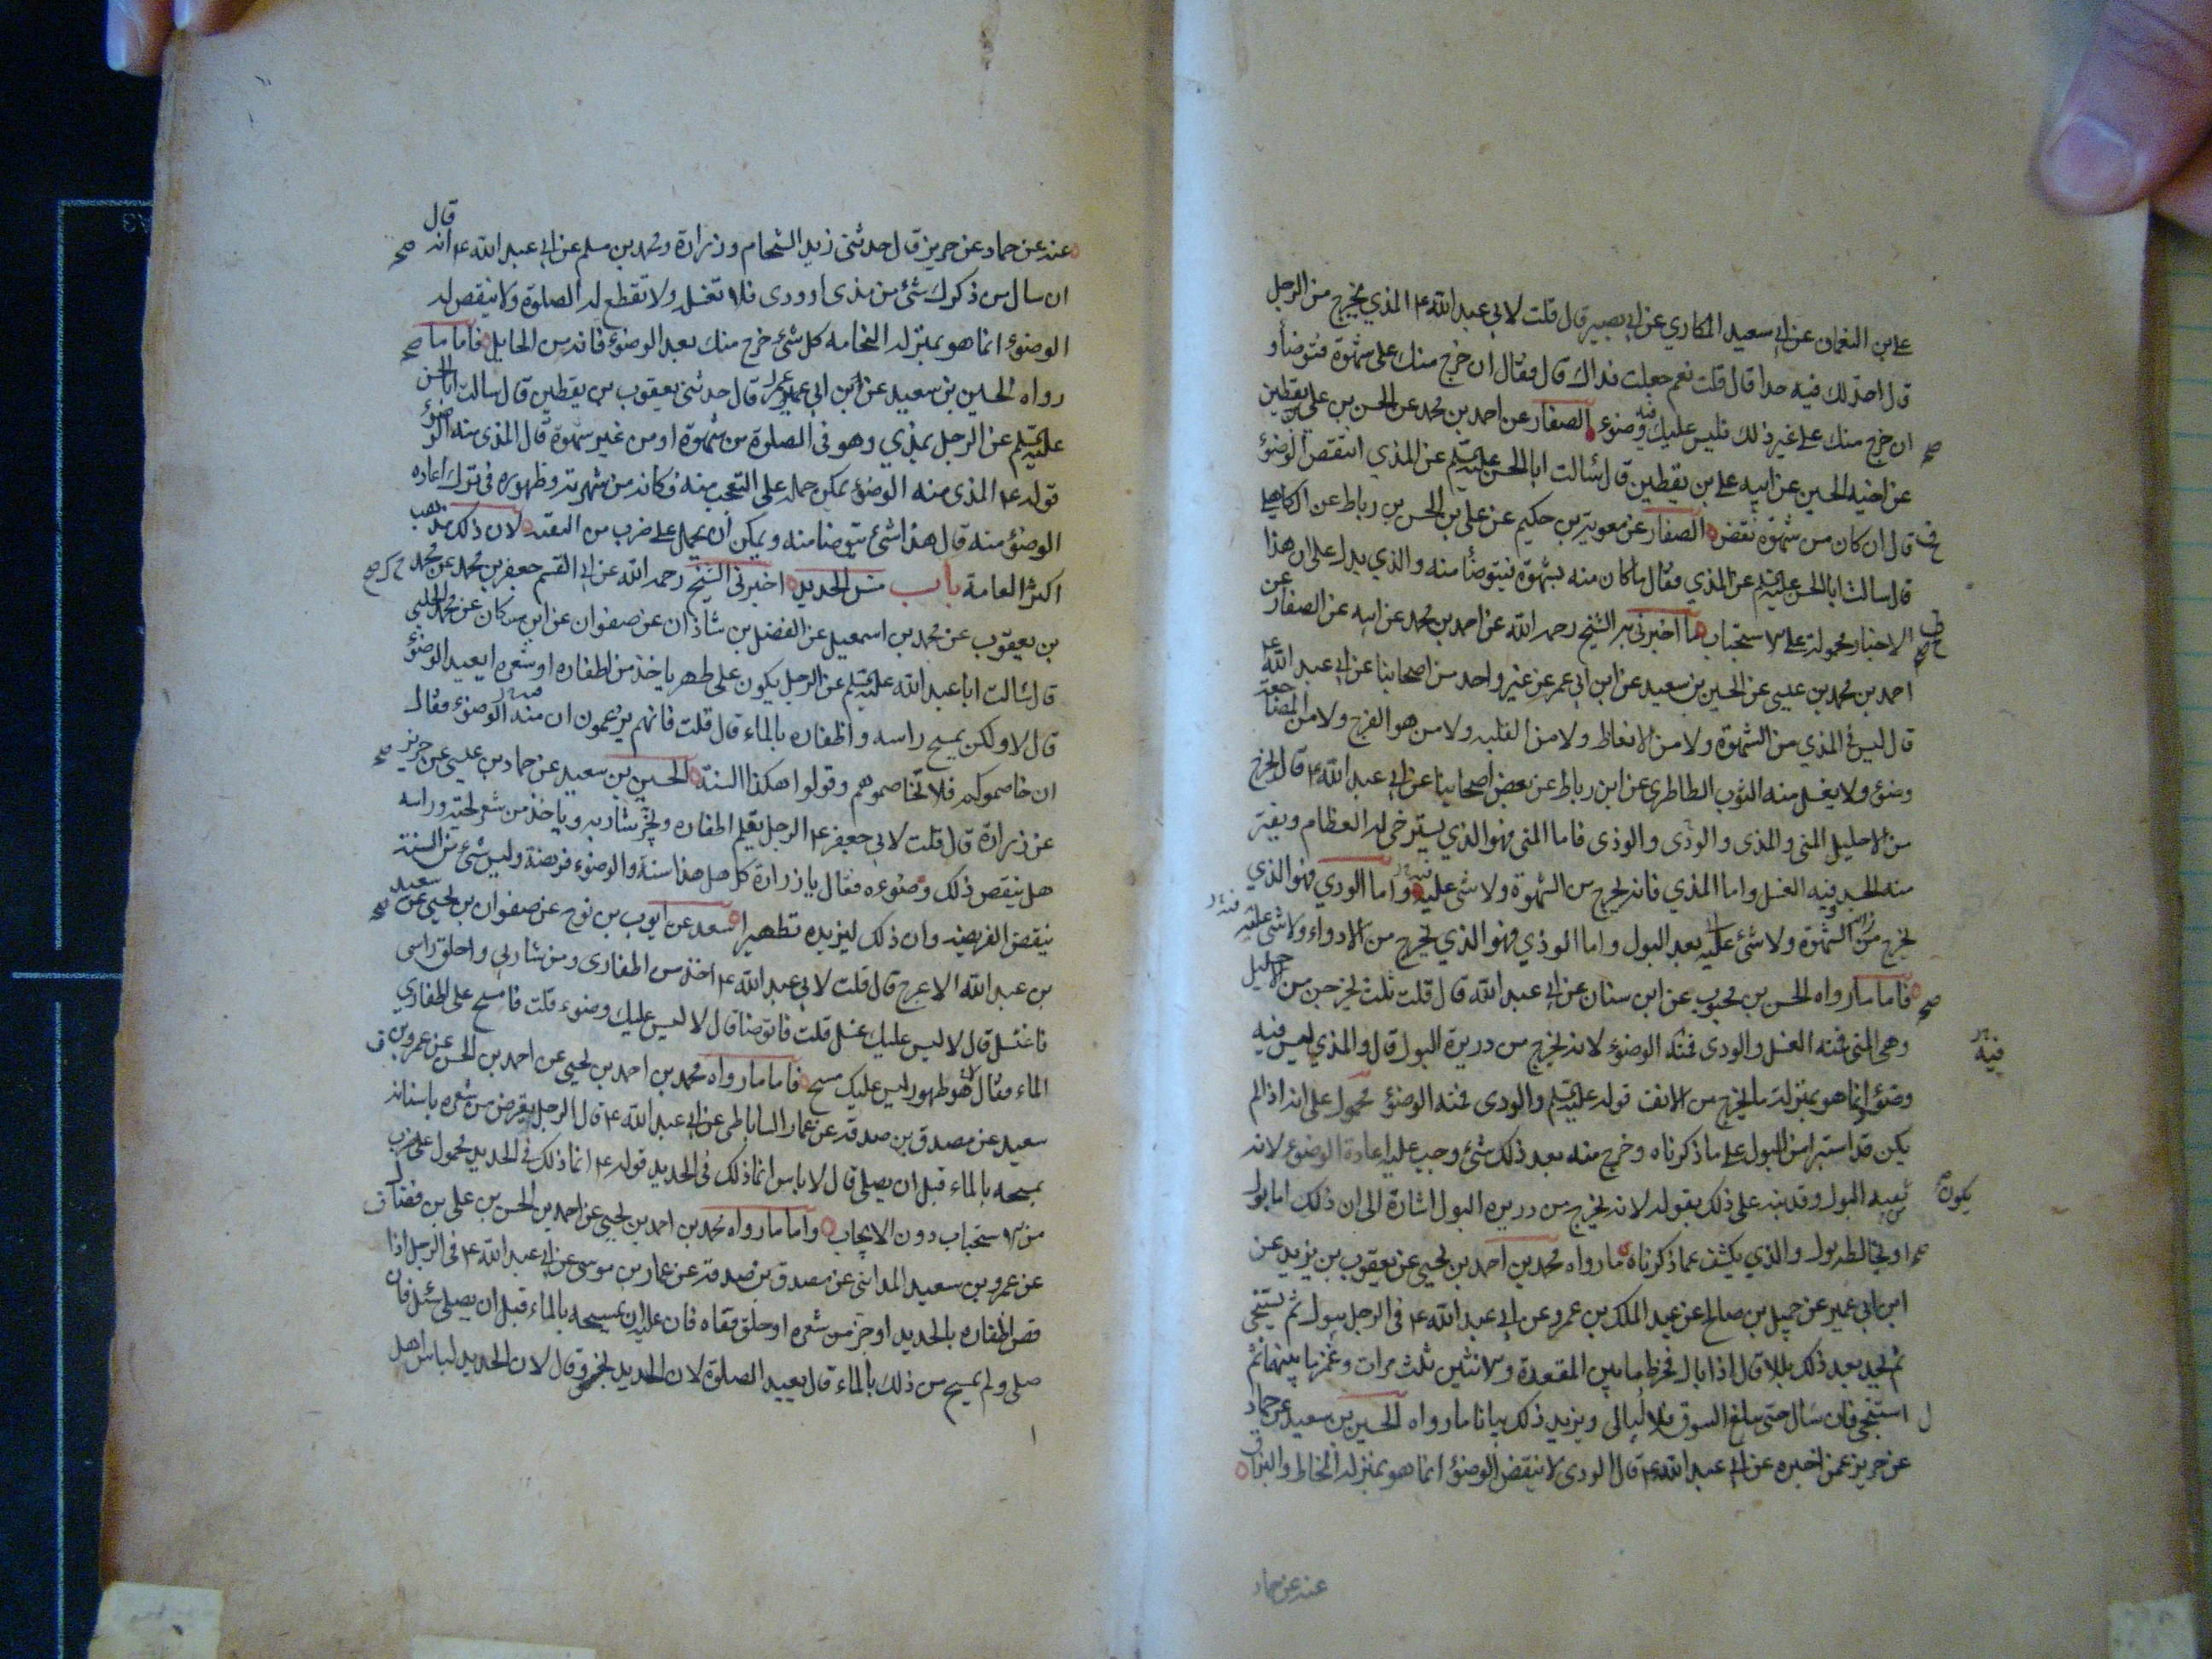 علي بن النعمان عن ابي سعيد المكاري عن ابي بصير قال قلت لابي عبد الله ع المذي يخرج من الرجل
قال احد لك فيه حدا قال قلت نعم جعلت فداك قال فقال ان خرج منك على شهوة فتوضأ و
ان خرج منك على غير ذلك فليس عليك فيه وضوء الصفار عن احمد بن محمد عن الحسن بن علي بن يقطين
عن اخيه الحسين عن ابيه علي بن يقطين قال سالت ابا الحسن عليه السلم عن المذي اينقض الوضوء
قال ان كان من شهوة نقض الصفار عن معوية بن حكيم عن علي بن الحسن بن رباط عن الكاهلي
قال سالت ابا الحسن عليه السلم عن المذي فقال ما كان منه بشهوة فيتوضأ منه والذي يدل على ان هذا
الاخبار محمولة على الاستحباب ما اخبرني به الشيخ رحمه الله عن احمد بن محمد عن ابيه عن الصفار عن
احمد بن محمد بن عيسى عن الحسين بن سعيد عن ابن ابي عمير عن غير واحد من اصحابنا عن ابي عبد الله ع
قال ليس في المذي من الشهوة ولا من الانعاظ ولا من القبلة ولا من مس الفرج ولا من المضاجعة
وضوء ولا يغسل منه الثوب الطاطري عن ابن رباط عن بعض اصحابنا عن ابي عبد الله ع قال يخرج
من الاحليل المني والمذي والودي والوذي فاما المني فهو الذي يسترخي له العظام ويفتر
منه الجسد وفيه الغسل واما المذي فانه يخرج من الشهوة ولا شئ عليه واما الودي فهو الذي
يخرج من الشهوة ولا شئ عليه بعد البول واما الوذي فهو الذي يخرج من الادواء ولا شئ عليه
فاما ما رواه الحسن بن محبوب عن ابن سنان عن ابي عبد الله قال قلت ثلث يخرجن من الاحليل
وهي المني فمنه الغسل والودي فمنه الوضوء لانه يخرج من دريرة البول قال والمذي ليس فيه
وضوء انما هو بمنزلة ما يخرج من الانف قوله عليه السلم والودي فمنه الوضوء محمول على انه اذا لم
يكن قد استبرا من البول على ما ذكرناه وخرج منه بعد ذلك شئ وجب عليه اعادة الوضوء لانه
يكون من بقية البول وقد نبه على ذلك بقوله لانه يخرج من دريرة البول اشارة الى ان ذلك اما بول
او يخالطه بول والذي يكشف عما ذكرناه ما رواه محمد بن احمد بن يحيى عن يعقوب بن يزيد عن
ابن ابي عمير عن جميل بن صالح عن عبد الملك بن عمرو عن ابي عبد الله ع في الرجل يبول ثم يستنجي
ثم يجد بعد ذلك بللا قال اذا بال فخرط ما بين المقعدة والانثيين ثلث مرات وغمز ما بينهما ثم
استنجى فان سال حتى يبلغ السوق فلا يبالي ويزيد ذلك بيانا ما رواه الحسين بن سعيد عن حماد
عن حريز عمن اخبره عن ابي عبد الله ع قال الودي لا ينقض الوضوء انما هو بمنزلة المخاط والبزاق
عنه عن حماد
عنه عن حماد عن حريز قال حدثني زيد الشحام وزرارة ومحمد بن مسلم عن ابي عبد الله ع انه قال
ان سال من ذكرك شئ من مذى او ودى فلا تغسله ولا تقطع له الصلوة ولا ينقض له
الوضوء انما هو بمنزلة النخامة كل شئ خرج منك بعد الوضوء فانه من الحبايل فاما ما
رواه الحسين بن سعيد عن ابن ابي عمير قال حدثني يعقوب بن يقطين قال سالت ابا الحسن
عليه السلم عن الرجل يمذي وهو في الصلوة من شهوة او من غير شهوة قال المذى منه الوضوء
قوله ع المذى منه الوضوء يمكن حمله على التعجب منه فكانه من شهرته وظهوره في ترك اعادة
الوضوء منه قال هذا شئ يتوضا منه ويمكن ان يحمل على ضرب من التقية لان ذلك مذهب
اكثر العامة باب مس الحديد اخبرني الشيخ رحمه الله عن ابي القسم جعفر بن محمد عن محمد
بن يعقوب عن محمد بن اسمعيل عن الفضل بن شاذان عن صفوان عن ابن مسكان عن محمد الحلبي
قال سالت ابا عبد الله عليه السلم عن الرجل يكون على طهر ياخذ من اظفاره او شعره ايعيد الوضوء
قال لا ولكن يمسح راسه واظفاره بالماء قال قلت فانهم يزعمون ان فيه الوضوء فقال
ان خاصموكم فلا تخاصموهم وقولوا هكذا السنة الحسين بن سعيد عن حماد بن عيسى عن حريز
عن زرارة قال قلت لابي جعفر ع الرجل يقلم اظفاره ويجز شاربه وياخذ من شعر لحيته وراسه
هل ينقض ذلك وضوءه فقال يا زرارة كل هذا سنة والوضوء فريضة وليس شئ من السنة
ينقض الفريضة وان ذلك ليزيده تطهيرا سعد عن ايوب بن نوح عن صفوان بن يحيى عن سعيد
بن عبد الله الاعرج قال قلت لابي عبد الله ع اخذ من اظفارى ومن شاربي واحلق راسى
فاغتسل قال لا ليس عليك غسل قلت فاتوضا قال لا ليس عليك وضوء قلت فامسح على اظفاري
الماء فقال هو طهور ليس عليك مسح فاما ما رواه محمد بن احمد بن يحيى عن احمد بن الحسن عن عمرو بن
سعيد عن مصدق بن صدقة عن عمار الساباطى عن ابي عبد الله ع قال الرجل يقرض من شعره باسنانه
يمسحه بالماء قبل ان يصلى قال لا باس انما ذلك في الحديد قوله ع انما ذلك في الحديد محمول على ضرب
من الاستحباب دون الايجاب واما ما رواه محمد بن احمد بن يحيى عن احمد بن الحسن بن علي بن فضال
عن عمرو بن سعيد المدايني عن مصدق بن صدقة عن عمار بن موسى عن ابي عبد الله ع في الرجل اذا
قص اظفاره بالحديد او جز من شعره او حلق قفاه فان عليه ان يمسحه بالماء قبل ان يصلى سئل فان
صلى ولم يمسح من ذلك بالماء قال يعيد الصلوة لان الحديد نجس وقال لان الحديد لباس اهل